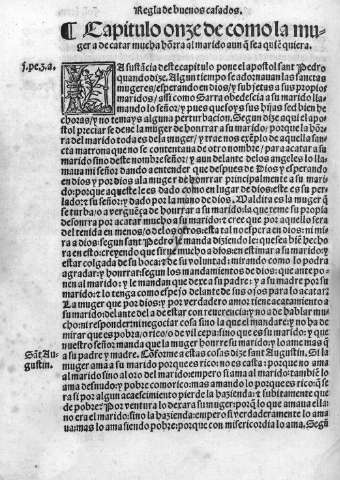 Regla de buenos casados.
¶ Capitulo onze de como la mu-
ger a de catar mucha hõrra al marido aun q̃ sea quiẽ quiera.
j. pe. 3. a.
LA sustãcia deste capitulo pone el apostol sant Pedro
quando dize. Algun tiempo se adornauan las sanctas
mugeres, esperando en dios, y subjetas a sus propios
maridos, assi como Sarra obedescia a su marido lla-
mando lo señor: y pues que soys sus hijas sed bien he
choras, y no temays alguna perturbacion. Segun dize aqui el apo
stol preciar se deue la muger de honrrar a su marido: porque la hõr
ra del marido toda es de la muger, y trae nos exẽplo de aquella san-
cta matrona que no se contentaua de otro nombre, para acatar a su
marido sino deste nombre señor: y aun delante de los angeles lo lla-
maua mi señor dando a entender que despues de Dios y esperando
en dios y por dios a la muger de honrrar principalmente a su mari-
do: porque aquel le es dado como en lugar de dios: este es su per-
lado: z su señor: y dado por la mano de dios. Maldita es la muger q̃
se turba: o a verguẽça de honrrar a su marido: la que teme su propia
desorra por acatar mucho a su marido: z cree que por aquello sera
del tenida en menos, o de los otros: esta tal no espera en dios: ni mi-
ra a dios: segun sant Pedro le manda diziendo le: que sea biẽ hecho
ra en esto: creyendo que sirue mucho a dios en estimar a su marido: y
estar colgada de su boca: y de su voluntad: mirando como lo podra
agradar: y honrrar: segun los mandamientos de dios: que ante po-
nen al marido: z le mandan que dexe a su padre: y a su madre por su
marido: z lo tenga como espejo delante de sus ojos para lo acatar.
La muger que por dios: y por verdadero amor tiene acatamiento a
su marido: delante del a de estar con reuerencia: y no a de hablar mu-
cho: ni responder: ni negociar cosa sino la que el mandare: y no ha de
mirar que es pobre, o rico: o de vil espadino que es su marido: y que
nuestro señor manda que la muger honrre su marido: y lo ame mas q̃
a su padre y madre. Cõforme a estas cosas dize sant Augustin. Si la
Sãt Au-
gustin.
muger ama a su marido porque es rico: no es casta: porque no ama
al marido sino al oro del marido: empero si ama al marido: tambiẽ lo
ama desnudo: y pobre como rico: mas amando lo porque es rico: q̃ se
ra si por algun acaescimiento pierde la hazienda: z subitamente que
de pobre? Por ventura lo dexara su muger: porq̃ lo que amaua ella:
no era el marido: sino la hazienda: empero si verdaderamente lo ama
ua: mas lo ama siendo pobre: porque con misericordia lo ama. Segũ